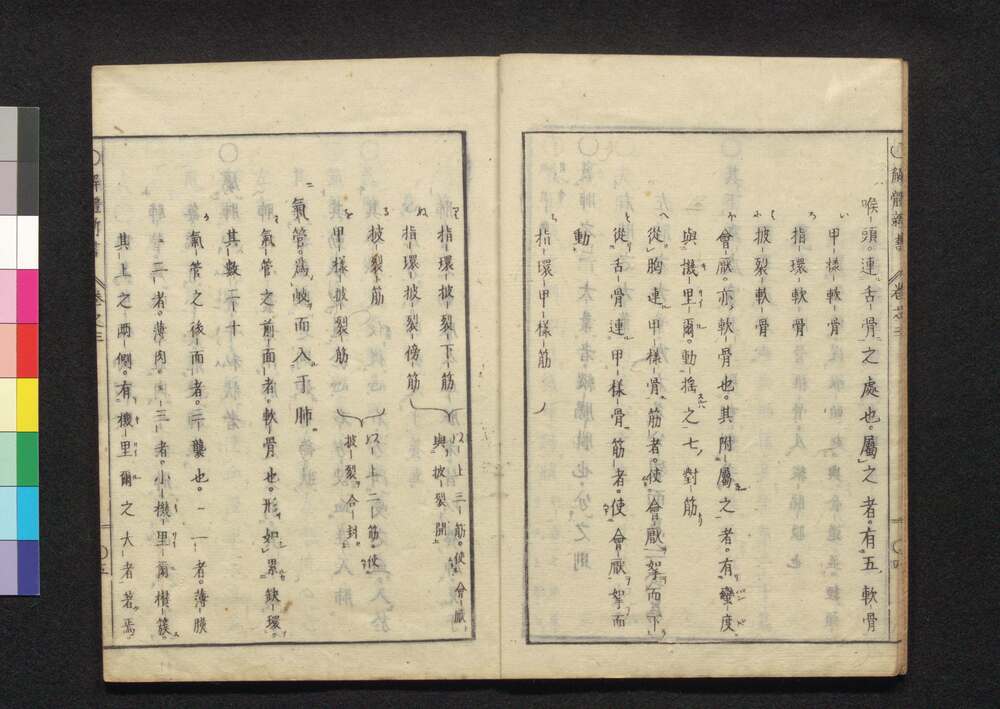 解體新書 卷之三 〇四
喉頭。連舌骨之處也。屬之者。有五軟骨
い 甲樣軟骨
ろ 指環軟骨
は 披裂軟骨
に 會厭。亦軟骨也。其附屬之者。有蠻度
與機里爾。動搖之七對筋
へ 從胸連甲樣骨筋者。使會厭挐而下
と 從舌骨連甲樣骨筋者。使會厭挐而
動
ち 指環甲樣筋
指環披裂下筋
ぬ 指環披裂傍筋
以上三筋。使會厭
與披裂開
る 披裂筋
を 甲樣披裂筋
以上二筋。使
披裂合封
氣管。爲岐而入于肺。
氣管之前面者。軟骨也。形如累缺環。
其數二十
氣管之後面者。三襲也。一者。薄膜
二者。薄肉。三者。小機里爾櫕簇。
其上之兩側。有機里爾之大者著焉。
解體新書 卷之三 〇五